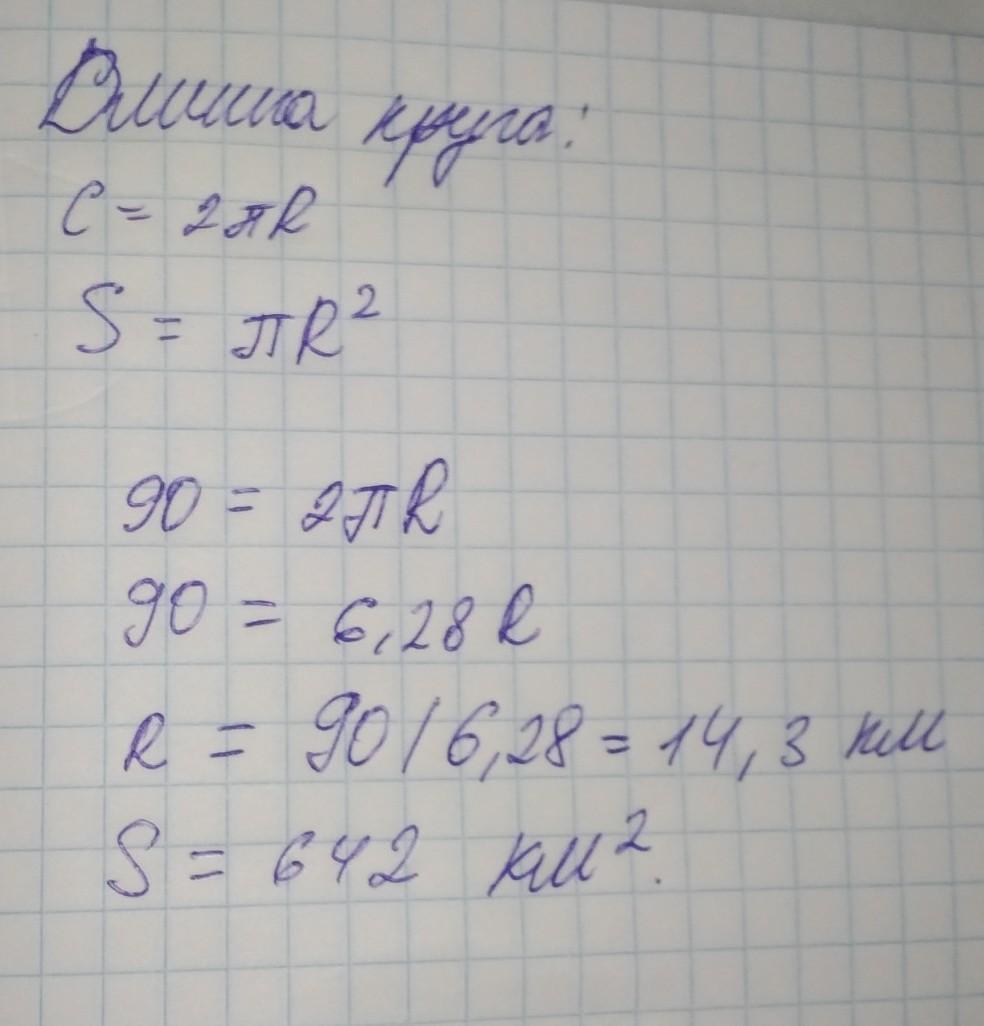 Длина круга:
C = 2πR
S = πR²
90 = 2πR
90 = 6,28 R
R = 90 / 6,28 = 14,3 км
S = 642 км².